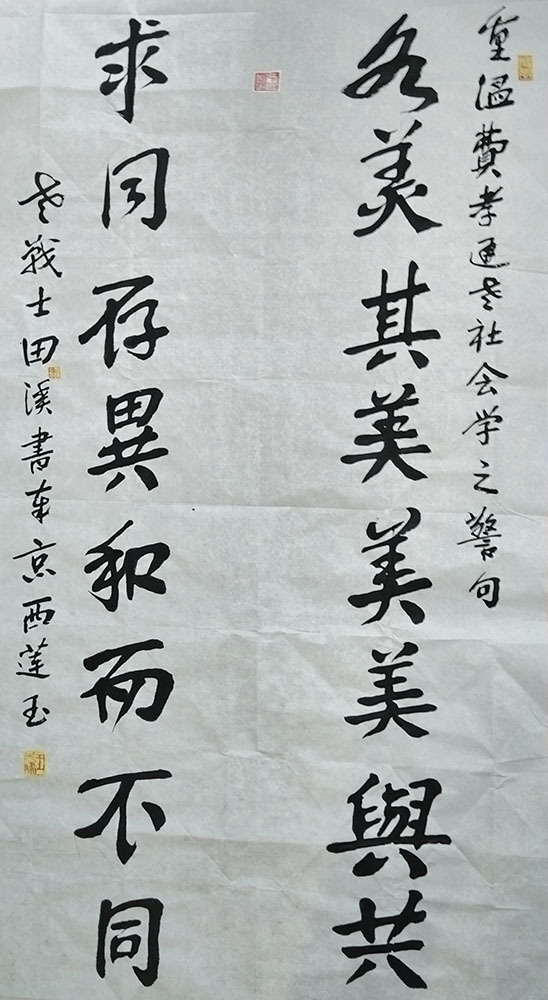 重温費孝通老社会学之警句
各美其美美美與共
求同存異和而不同
老战士田溪書在京西莲玉